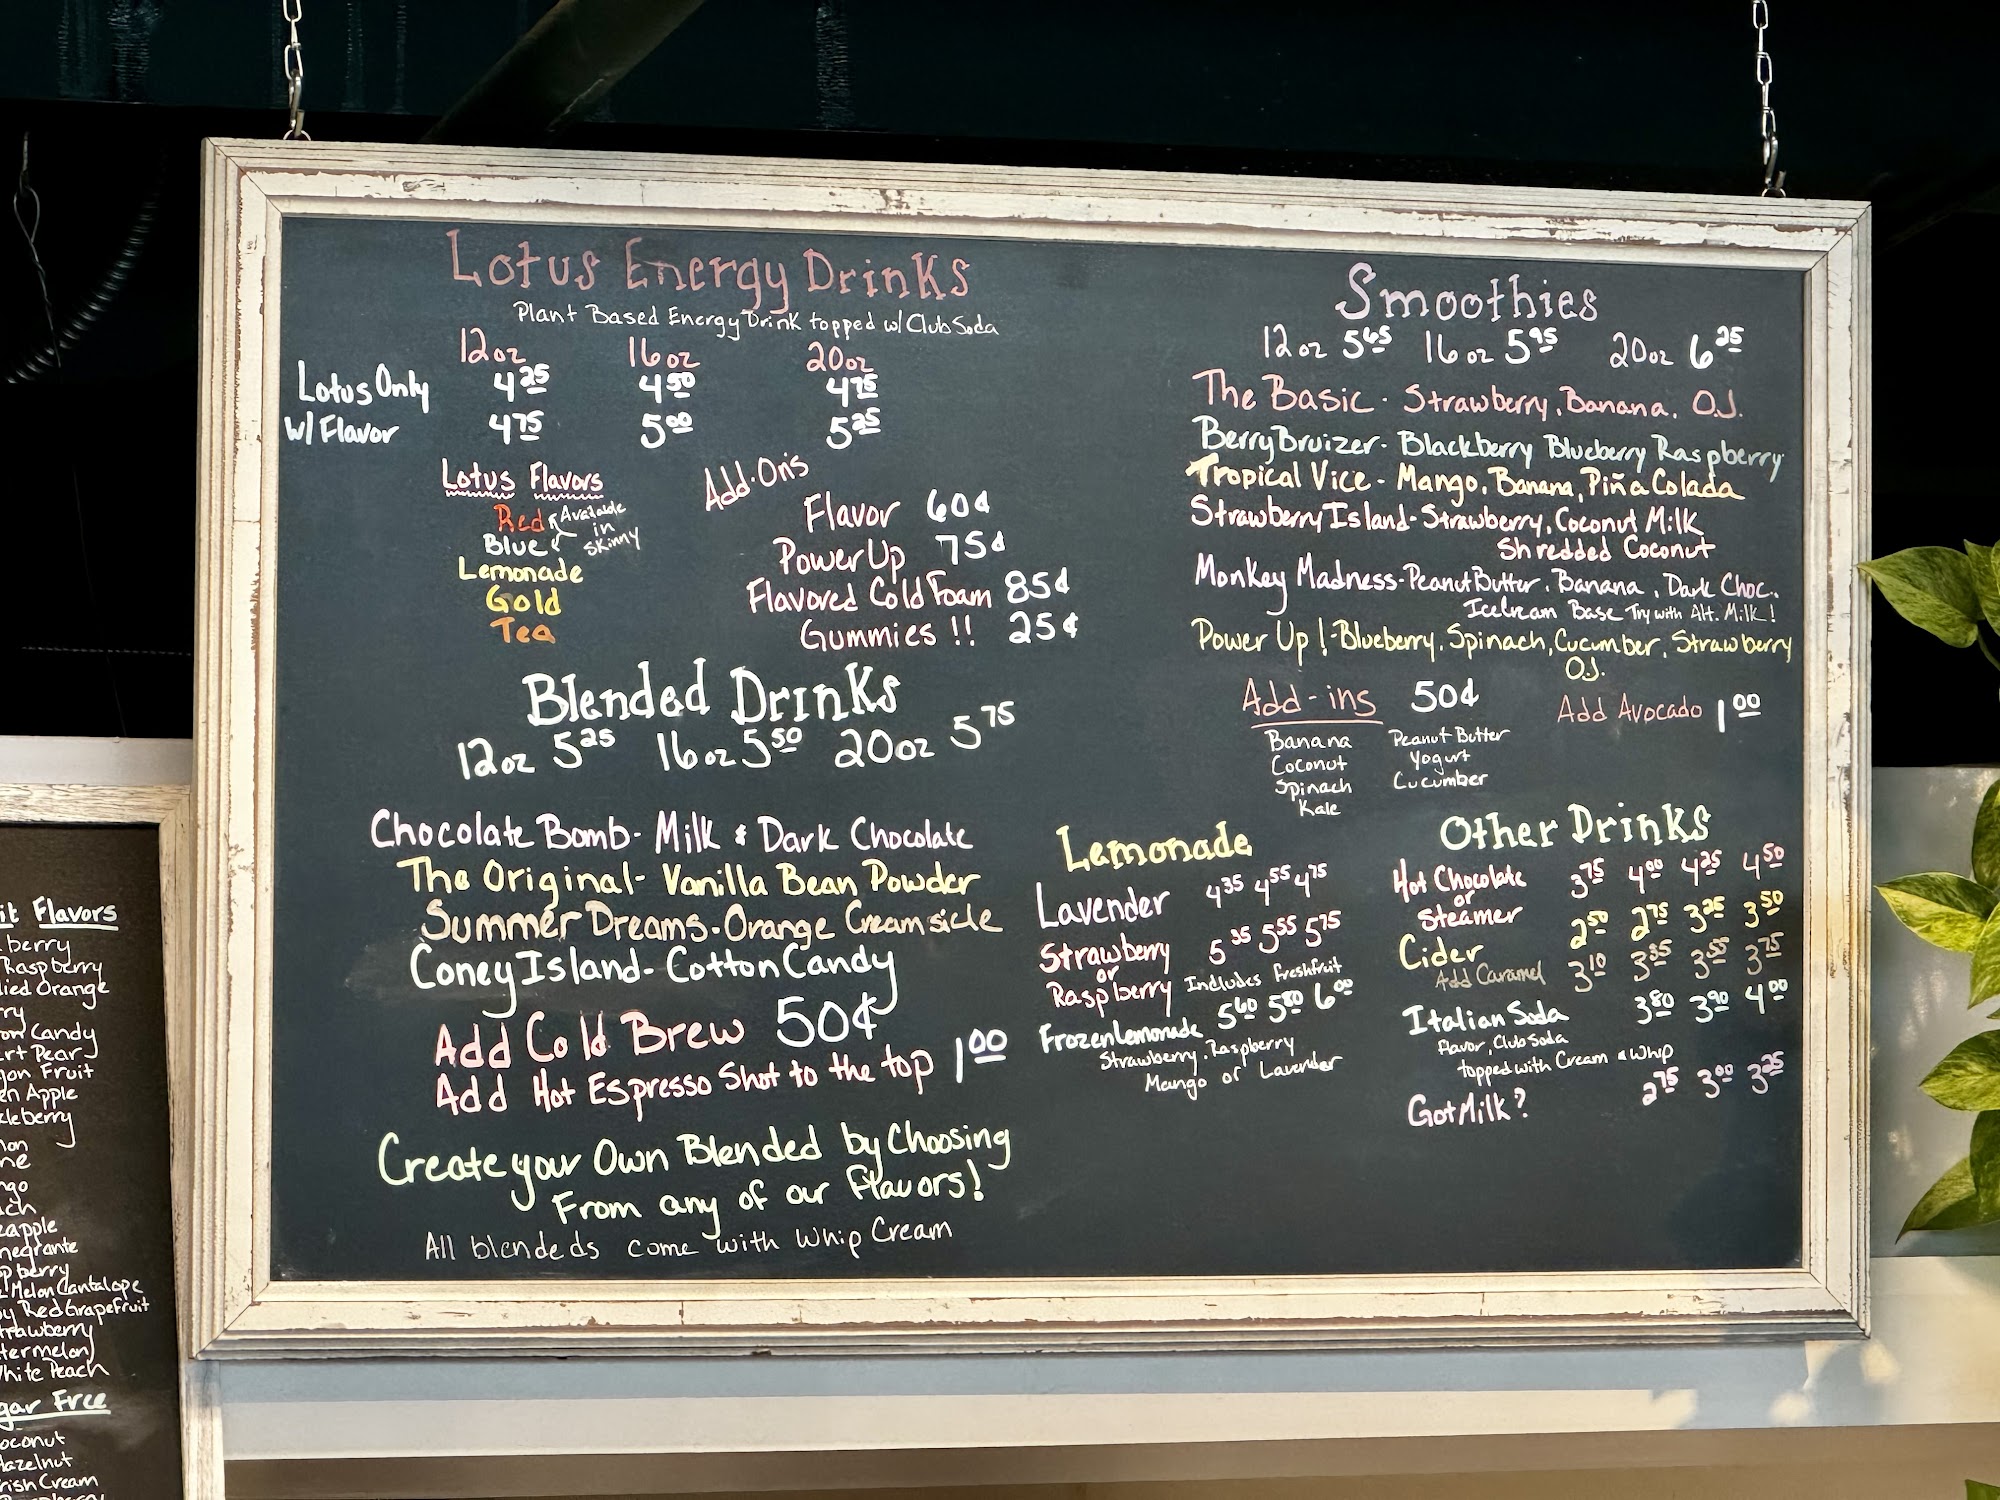 Lotus Energy Drinks
Plant Based Energy Drink topped w/ Club Soda
12oz 16oz 20oz
Lotus Only 4.25 4.50 4.75
w/ Flavor 4.75 5.00 5.25
Lotus Flavors
Red
Blue
Available in Skinny
Lemonade
Gold
Tea
Add-Ons
Flavor 60¢
Power Up 75¢
Flavored Cold Foam 85¢
Gummies !! 25¢
Blended Drinks
12oz 5.25 16oz 5.50 20oz 5.75
Chocolate Bomb - Milk & Dark Chocolate
The Original - Vanilla Bean Powder
Summer Dreams - Orange Creamsicle
Coney Island - Cotton Candy
Add Cold Brew 50¢
Add Hot Espresso Shot to the top 1.00
Create your Own Blended by Choosing
From any of our Flavors!
All blendeds come with Whip Cream
Smoothies
12oz 5.65 16oz 5.95 20oz 6.25
The Basic - Strawberry, Banana, O.J.
Berry Bruizer - Blackberry Blueberry Raspberry
Tropical Vice - Mango, Banana, Piña Colada
Strawberry Island - Strawberry, Coconut Milk
Shredded Coconut
Monkey Madness - Peanut Butter, Banana, Dark Choc.
Icecream Base Try with Alt. Milk!
Power Up! - Blueberry, Spinach, Cucumber, Strawberry
O.J.
Add-ins 50¢
Banana
Coconut
Spinach
Kale
Peanut Butter
Yogurt
Cucumber
Add Avocado 1.00
Lemonade
Lavender 4.35 4.55 4.75
Strawberry 5.35 5.55 5.75
or
Raspberry Includes Freshfruit
Frozen Lemonade 5.60 5.80 6.00
Strawberry, Raspberry
Mango or Lavender
Other Drinks
Hot Chocolate 3.75 4.00 4.25 4.50
or
Steamer
Cider 2.50 2.75 3.25 3.50
Add Caramel 3.10 3.35 3.55 3.75
Italian Soda 3.80 3.90 4.00
Flavor, Club Soda
topped with Cream & Whip
Got Milk? 2.75 3.00 3.25
Flavors
Raspberry
Orange
Candy
Pear
Fruit
Apple
Melon Cantalope
Red Grapefruit
White Peach
Free
Cream